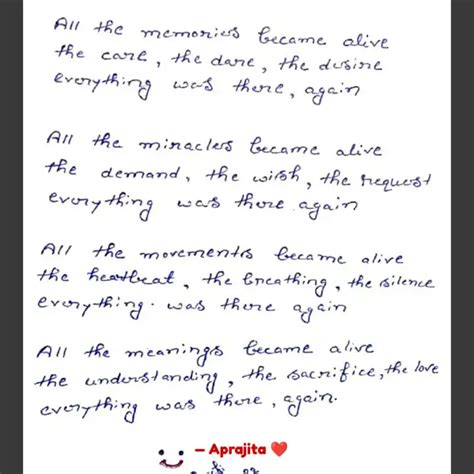 All the memories became alive
the care, the dare, the desire
everything was there, again
All the miracles became alive
the demand, the wish, the request
everything was there again
All the movements became alive
the heartbeat, the breathing, the silence
everything. was there again
All the meanings became alive
the understanding, the sacrifice, the love
everything was there, again.
— Aprajita ❤️